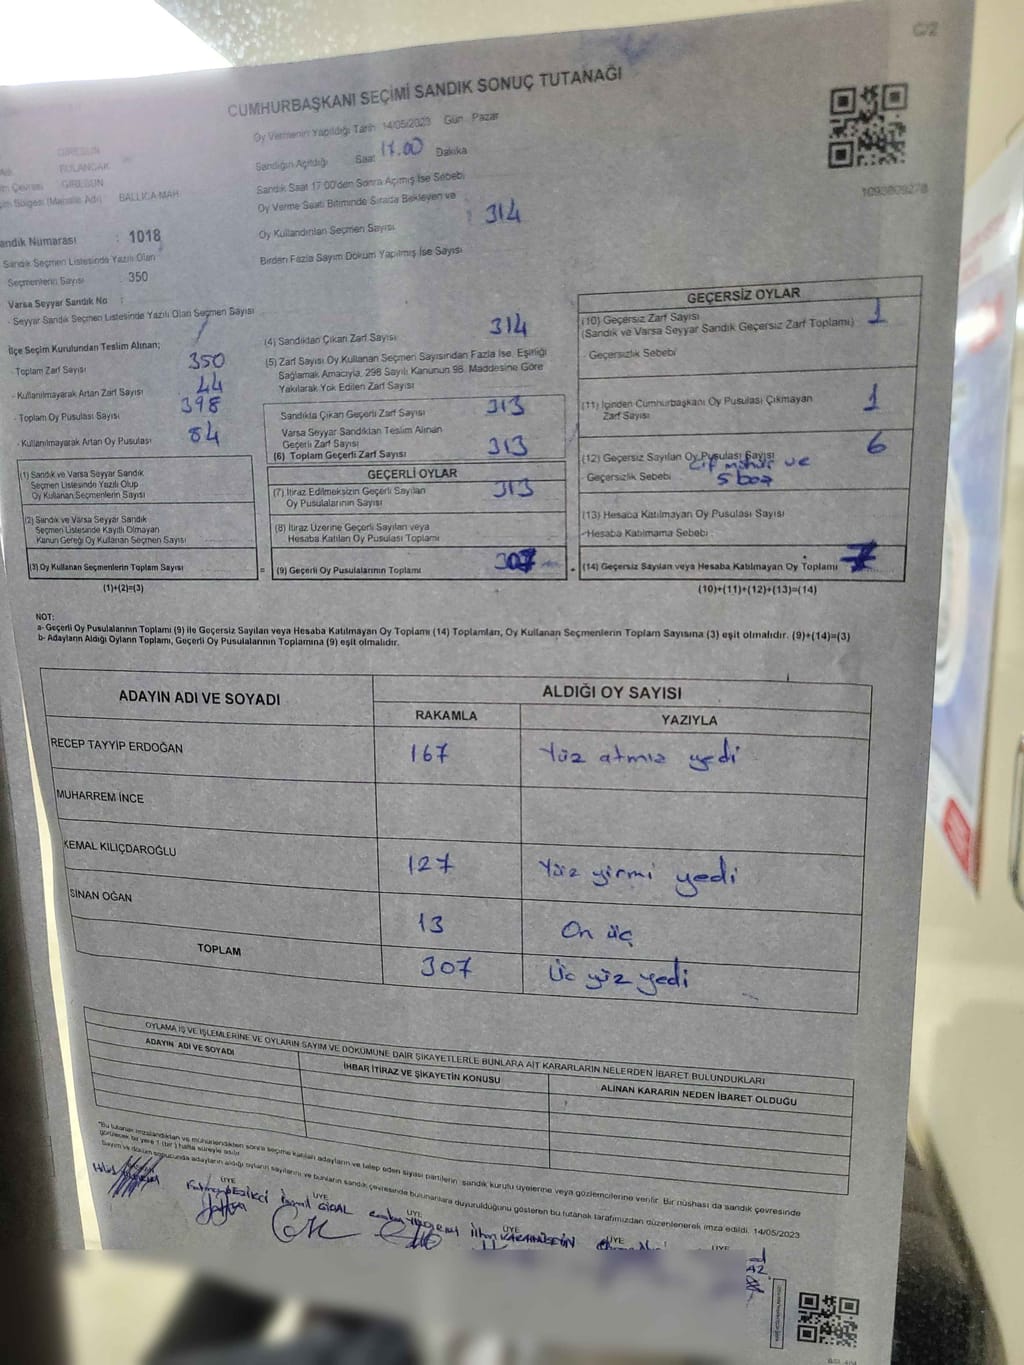 C/2
CUMHURBAŞKANI SEÇİMİ SANDIK SONUÇ TUTANAĞI
Oy Vermenin Yapıldığı Tarih 14/05/2023 Gün Pazar
GİRESUN
Sandığın Açıldığı Saat 17.00 Dakika
BULANCAK
GİRESUN
Sandık Saat 17 00'den Sonra Açımış İse Sebebi
BALLICA MAH.
1093809278
Oy Verme Saati Bitiminde Sırada Bekleyen ve
Oy Kullandırılan Seçmen Sayısı : 314
Sandık Numarası : 1018
Birden Fazla Sayım Döküm Yapılmış İse Sayısı
Sandık Seçmen Listesinde Yazılı Olan
Seçmenlerin Sayısı : 350
Varsa Seyyar Sandık No :
- Seyyar Sandık Seçmen Listesinde Yazılı Olan Seçmen Sayısı
İlçe Seçim Kurulundan Teslim Alınan;
- Toplam Zarf Sayısı 350
- Kullanılmayarak Artan Zarf Sayısı 44
- Toplam Oy Pusulası Sayısı 398
- Kullanılmayarak Artan Oy Pusulası 84
(1) Sandık ve Varsa Seyyar Sandık
Seçmen Listesinde Yazılı Olup
Oy Kullanan Seçmenlerin Sayısı
(2) Sandık ve Varsa Seyyar Sandık
Seçmen Listesinde Kayıtlı Olmayan
Kanun Gereği Oy Kullanan Seçmen Sayısı
(3) Oy Kullanan Seçmenlerin Toplam Sayısı
(1)+(2)=(3)
(4) Sandıktan Çıkan Zarf Sayısı 314
(5) Zarf Sayısı Oy Kullanan Seçmen Sayısından Fazla İse, Eşitliği
Sağlamak Amacıyla, 298 Sayılı Kanunun 98. Maddesine Göre
Yakılarak Yok Edilen Zarf Sayısı
Sandıkta Çıkan Geçerli Zarf Sayısı 313
Varsa Seyyar Sandıktan Teslim Alınan
Geçerli Zarf Sayısı
(6) Toplam Geçerli Zarf Sayısı 313
GEÇERLİ OYLAR
(7) İtiraz Edilmeksizin Geçerli Sayılan
Oy Pusulalarının Sayısı 313
(8) İtiraz Üzerine Geçerli Sayılan veya
Hesaba Katılan Oy Pusulası Toplamı
= (9) Geçerli Oy Pusulalarının Toplamı 307
GEÇERSİZ OYLAR
(10) Geçersiz Zarf Sayısı 1
(Sandık ve Varsa Seyyar Sandık Geçersiz Zarf Toplamı)
Geçersizlik Sebebi
(11) İçinden Cumhurbaşkanı Oy Pusulası Çıkmayan
Zarf Sayısı 1
(12) Geçersiz Sayılan Oy Pusulası Sayısı 6
Geçersizlik Sebebi Çif mühür ve
5 boş
(13) Hesaba Katılmayan Oy Pusulası Sayısı
- Hesaba Katılmama Sebebi :
(14) Geçersiz Sayılan veya Hesaba Katılmayan Oy Toplamı 7
(10)+(11)+(12)+(13)=(14)
NOT:
a- Geçerli Oy Pusulalarının Toplamı (9) ile Geçersiz Sayılan veya Hesaba Katılmayan Oy Toplamı (14) Toplamları, Oy Kullanan Seçmenlerin Toplam Sayısına (3) eşit olmalıdır. (9)+(14)=(3)
b- Adayların Aldığı Oyların Toplamı, Geçerli Oy Pusulalarının Toplamına (9) eşit olmalıdır.
ADAYIN ADI VE SOYADI
ALDIĞI OY SAYISI
RAKAMLA YAZIYLA
RECEP TAYYİP ERDOĞAN 167 Yüz atmış yedi
MUHARREM İNCE
KEMAL KILIÇDAROĞLU 127 Yüz yirmi yedi
SİNAN OĞAN 13 On üç
TOPLAM 307 Üc yüz yedi
OYLAMA İŞ VE İŞLEMLERİNE VE OYLARIN SAYIM VE DÖKÜMÜNE DAİR ŞİKAYETLERLE BUNLARA AİT KARARLARIN NELERDEN İBARET BULUNDUKLARI
ADAYIN ADI VE SOYADI İHBAR İTİRAZ VE ŞİKAYETİN KONUSU ALINAN KARARIN NEDEN İBARET OLDUĞU
"Bu tutanak imzalandıktan ve mühürlendikten sonra seçime katılan adayların ve talep eden siyasi partilerin sandık kurulu üyelerine veya gözlemcilerine verilir. Bir nüshası da sandık çevresinde
görülecek bir yere 1 (bir) hafta süreyle asılır.
Sayım ve döküm sonucunda adayların aldığı oyların sayılarını ve bunların sandık çevresinde bulunanlara duyurulduğunu gösteren bu tutanak tarafımızdan düzenlenerek imza edildi. 14/05/2023
ÜYE ÜYE ÜYE ÜYE ÜYE ÜYE
İsmail GİDAL
İlhan KARAHÜSEYİN